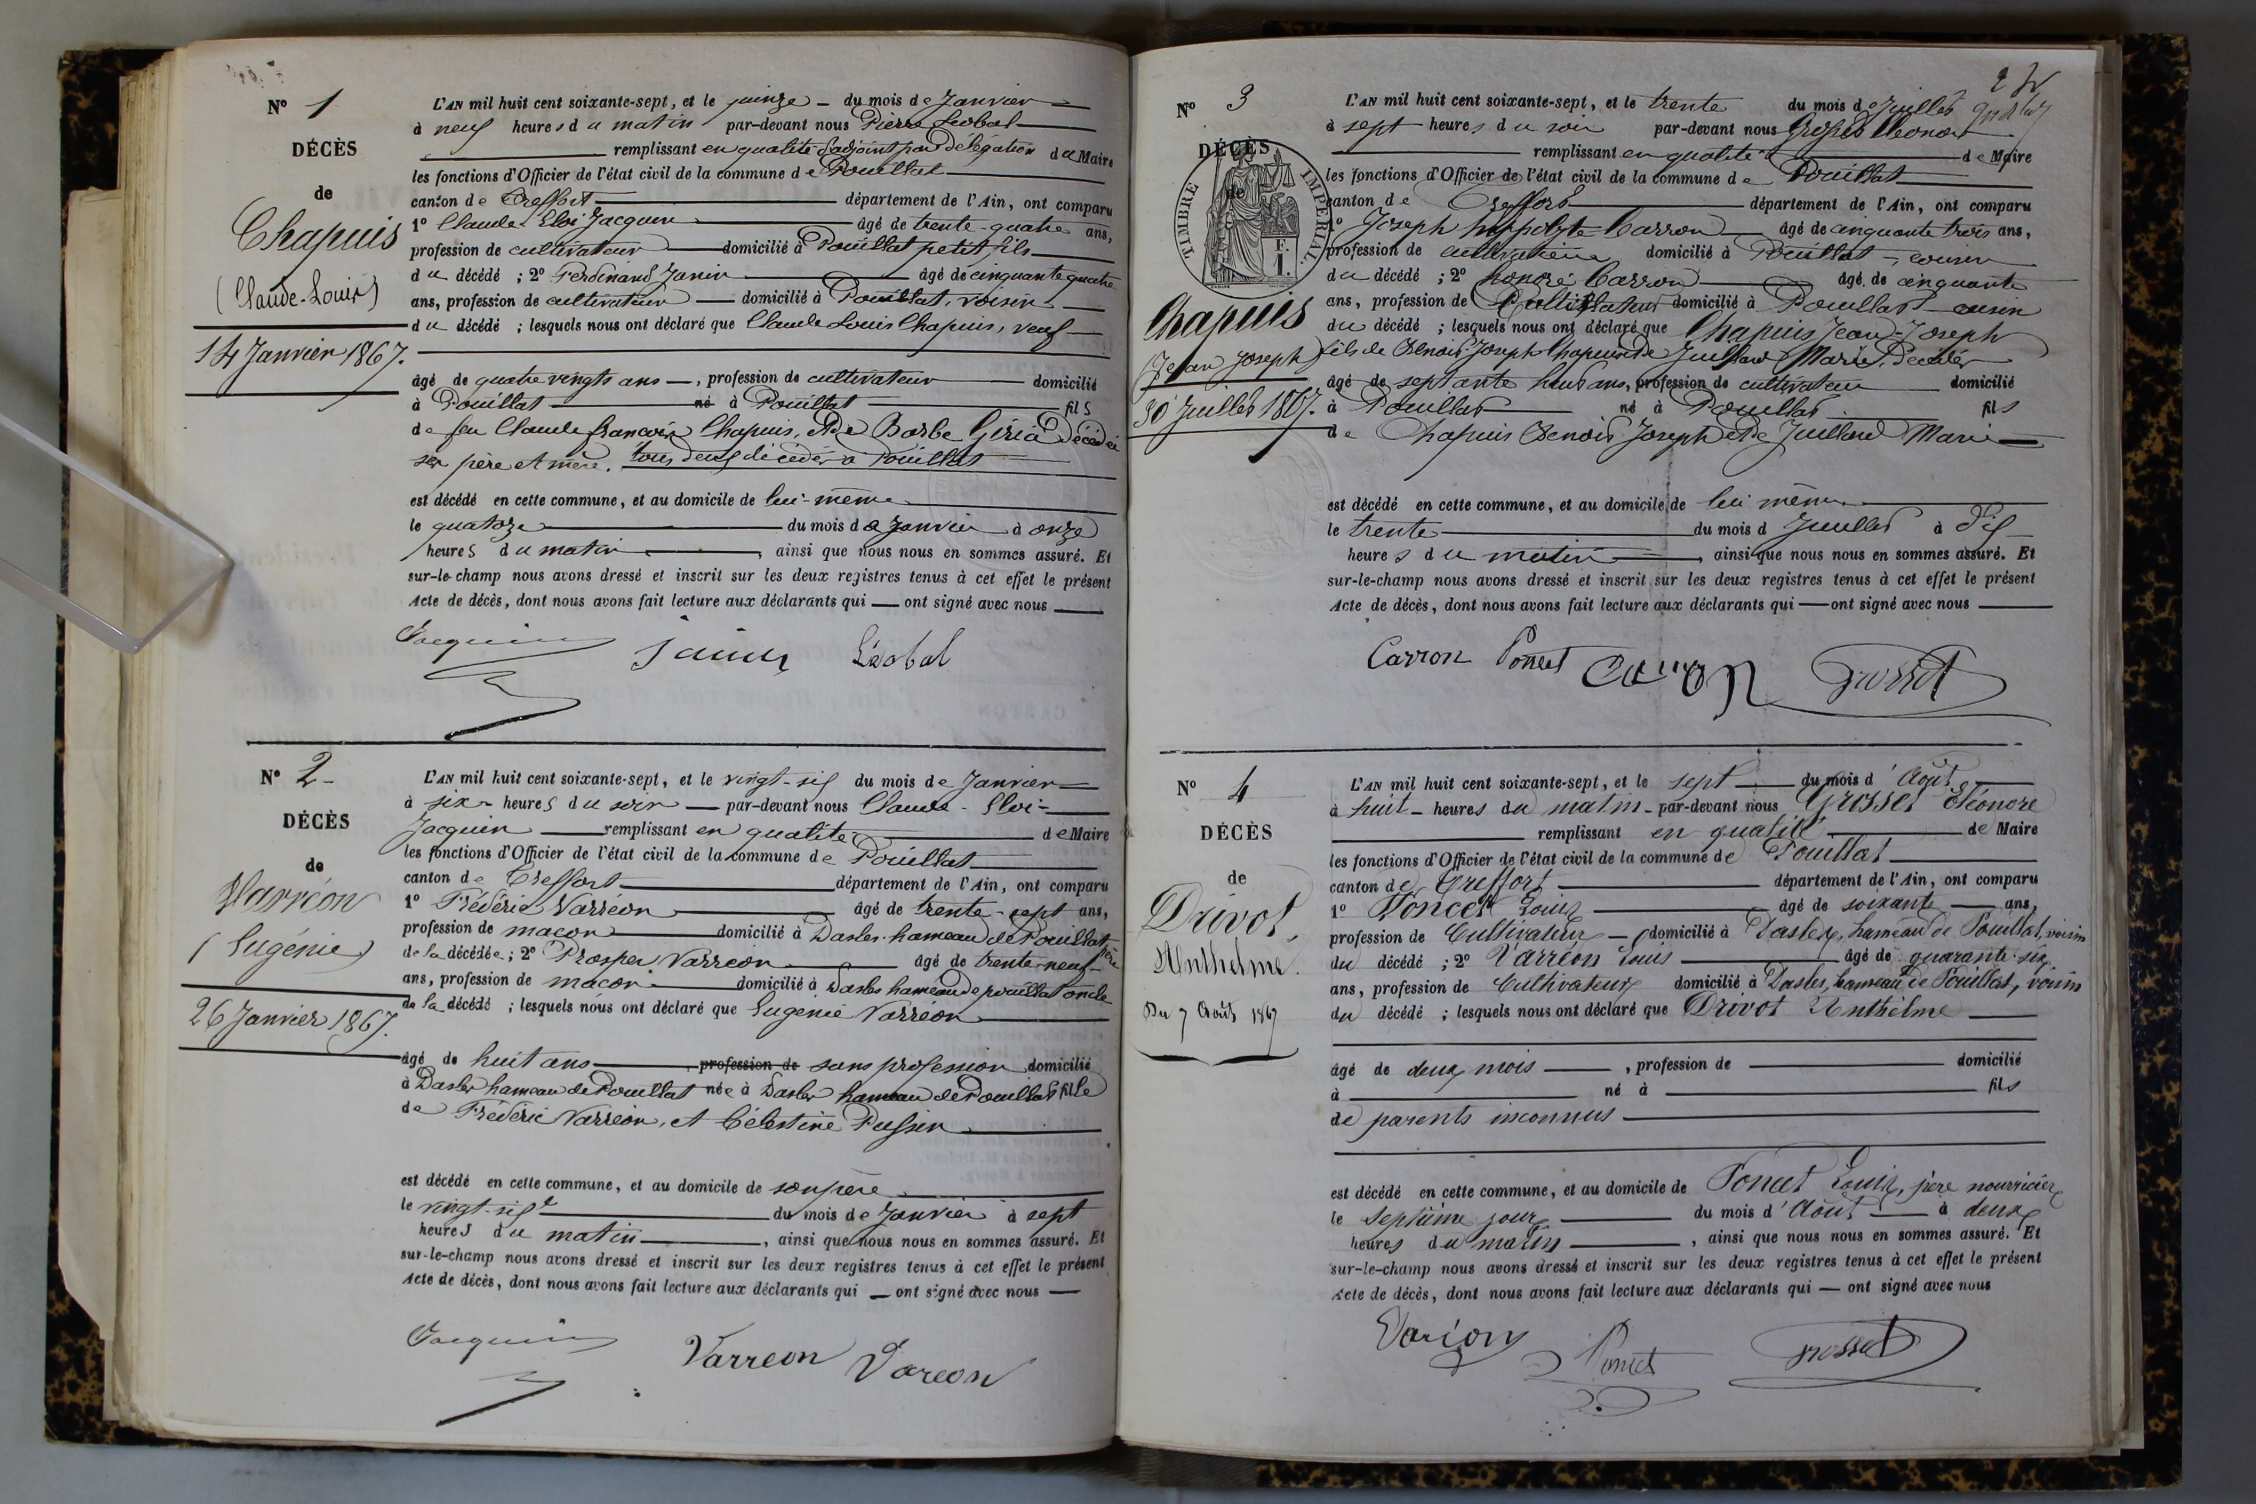 N° 1
DÉCÈS
de
Chapuis
(Claude-Louis)
14 Janvier 1867.
L'AN mil huit cent soixante-sept, et le quinze du mois de Janvier
à neuf heures du matin par-devant nous Pierre Léobal
remplissant en qualité d'adjoint par délégation du Maire
les fonctions d'Officier de l'état civil de la commune de Pouillat
canton de Treffort département de l'Ain, ont comparu
1° Claude Eloi Jacquin âgé de trente-quatre ans,
profession de cultivateur domicilié à Pouillat petit fils
du décédé ; 2° Ferdinand Janin âgé de cinquante quatre
ans, profession de cultivateur domicilié à Pouillat, voisin
du décédé ; lesquels nous ont déclaré que Claude Louis Chapuis, veuf
âgé de quatre vingts ans, profession de cultivateur domicilié
à Pouillat né à Pouillat fils
de feu Claude françois Chapuis, et de Barbe Décédée
ses père et mère. tous deux décédés à Pouillat
est décédé en cette commune, et au domicile de lui-même
le quatorze du mois de Janvier à onze
heures du matin, ainsi que nous nous en sommes assuré. Et
sur-le-champ nous avons dressé et inscrit sur les deux registres tenus à cet effet le présent
Acte de décès, dont nous avons fait lecture aux déclarants qui — ont signé avec nous
Jacquin Janin Léobal
N° 2
DÉCÈS
de
Varréon
(Eugénie)
26 Janvier 1867.
L'AN mil huit cent soixante-sept, et le vingt-six du mois de Janvier
à six heures du soir par-devant nous Claude-Eloi
Jacquin remplissant en qualité de Maire
les fonctions d'Officier de l'état civil de la commune de Pouillat
canton de Treffort département de l'Ain, ont comparu
1° Frédéric Varréon âgé de trente-sept ans,
profession de maçon domicilié à Dasles hameau de Pouillat père
de la décédée ; 2° Prosper Varréon âgé de trente-neuf
ans, profession de maçon domicilié à Dasles hameau de pouillat oncle
de la décédé ; lesquels nous ont déclaré que Eugénie Varréon
âgé de huit ans, profession de sans profession domicilié
à Dasles hameau de Pouillat née à Dasles hameau de Pouillat fille
de Frédéric Varréon, et Célestine
est décédé en cette commune, et au domicile de son père
le vingt-six du mois de Janvier à sept
heures du matin, ainsi que nous nous en sommes assuré. Et
sur-le-champ nous avons dressé et inscrit sur les deux registres tenus à cet effet le présent
Acte de décès, dont nous avons fait lecture aux déclarants qui — ont signé avec nous —
Jacquin Varreon Vareon
N° 3
DÉCÈS
de
TIMBRE IMPERIAL
Chapuis
(Jean Joseph)
30 Juillet 1867.
L'AN mil huit cent soixante-sept, et le trente du mois de Juillet
à sept heures du soir par-devant nous Grosset Eléonore
remplissant en qualité de Maire
les fonctions d'Officier de l'état civil de la commune de Pouillat
canton de Treffort département de l'Ain, ont comparu
1° Joseph hyppolyte Carron âgé de cinquante trois ans,
profession de cultivateur domicilié à Pouillat, cousin
du décédé ; 2° honoré Carron âgé de cinquante
ans, profession de Cultivateur domicilié à Pouillat cousin
du décédé ; lesquels nous ont déclaré que Chapuis Jean-Joseph
fils de Benoit Joseph Chapuis et de Juillard Marie, décédés
âgé de septante huit ans, profession de cultivateur domicilié
à Pouillat né à Pouillat fils
de Chapuis Benoit Joseph et de Juillard Marie
est décédé en cette commune, et au domicile de lui même
le trente du mois d Juillet à dix
heures du matin, ainsi que nous nous en sommes assuré. Et
sur-le-champ nous avons dressé et inscrit sur les deux registres tenus à cet effet le présent
Acte de décès, dont nous avons fait lecture aux déclarants qui — ont signé avec nous
Carron Poncet Carron Grosset
N° 4
DÉCÈS
de
Drivot,
Anthelme.
Du 7 Août 1867
L'AN mil huit cent soixante-sept, et le sept du mois d'Août
à huit heures du matin par-devant nous Grosset Eléonore
remplissant en qualité de Maire
les fonctions d'Officier de l'état civil de la commune de Pouillat
canton de Treffort département de l'Ain, ont comparu
1° Poncet Louis âgé de soixante ans,
profession de Cultivateur domicilié à Dasles, hameau de Pouillat, voisin
du décédé ; 2° Varréon Louis âgé de quarante-six
ans, profession de Cultivateur domicilié à Dasles, hameau de Pouillat, voisin
du décédé ; lesquels nous ont déclaré que Drivot Anthelme
âgé de deux mois, profession de domicilié
à né à fils
de parents inconnus
est décédé en cette commune, et au domicile de Poncet Louis, père nourricier
le septième jour du mois d'Août à deux
heures du matin, ainsi que nous nous en sommes assuré. Et
sur-le-champ nous avons dressé et inscrit sur les deux registres tenus à cet effet le présent
Acte de décès, dont nous avons fait lecture aux déclarants qui — ont signé avec nous
Varion Poncet Grosset